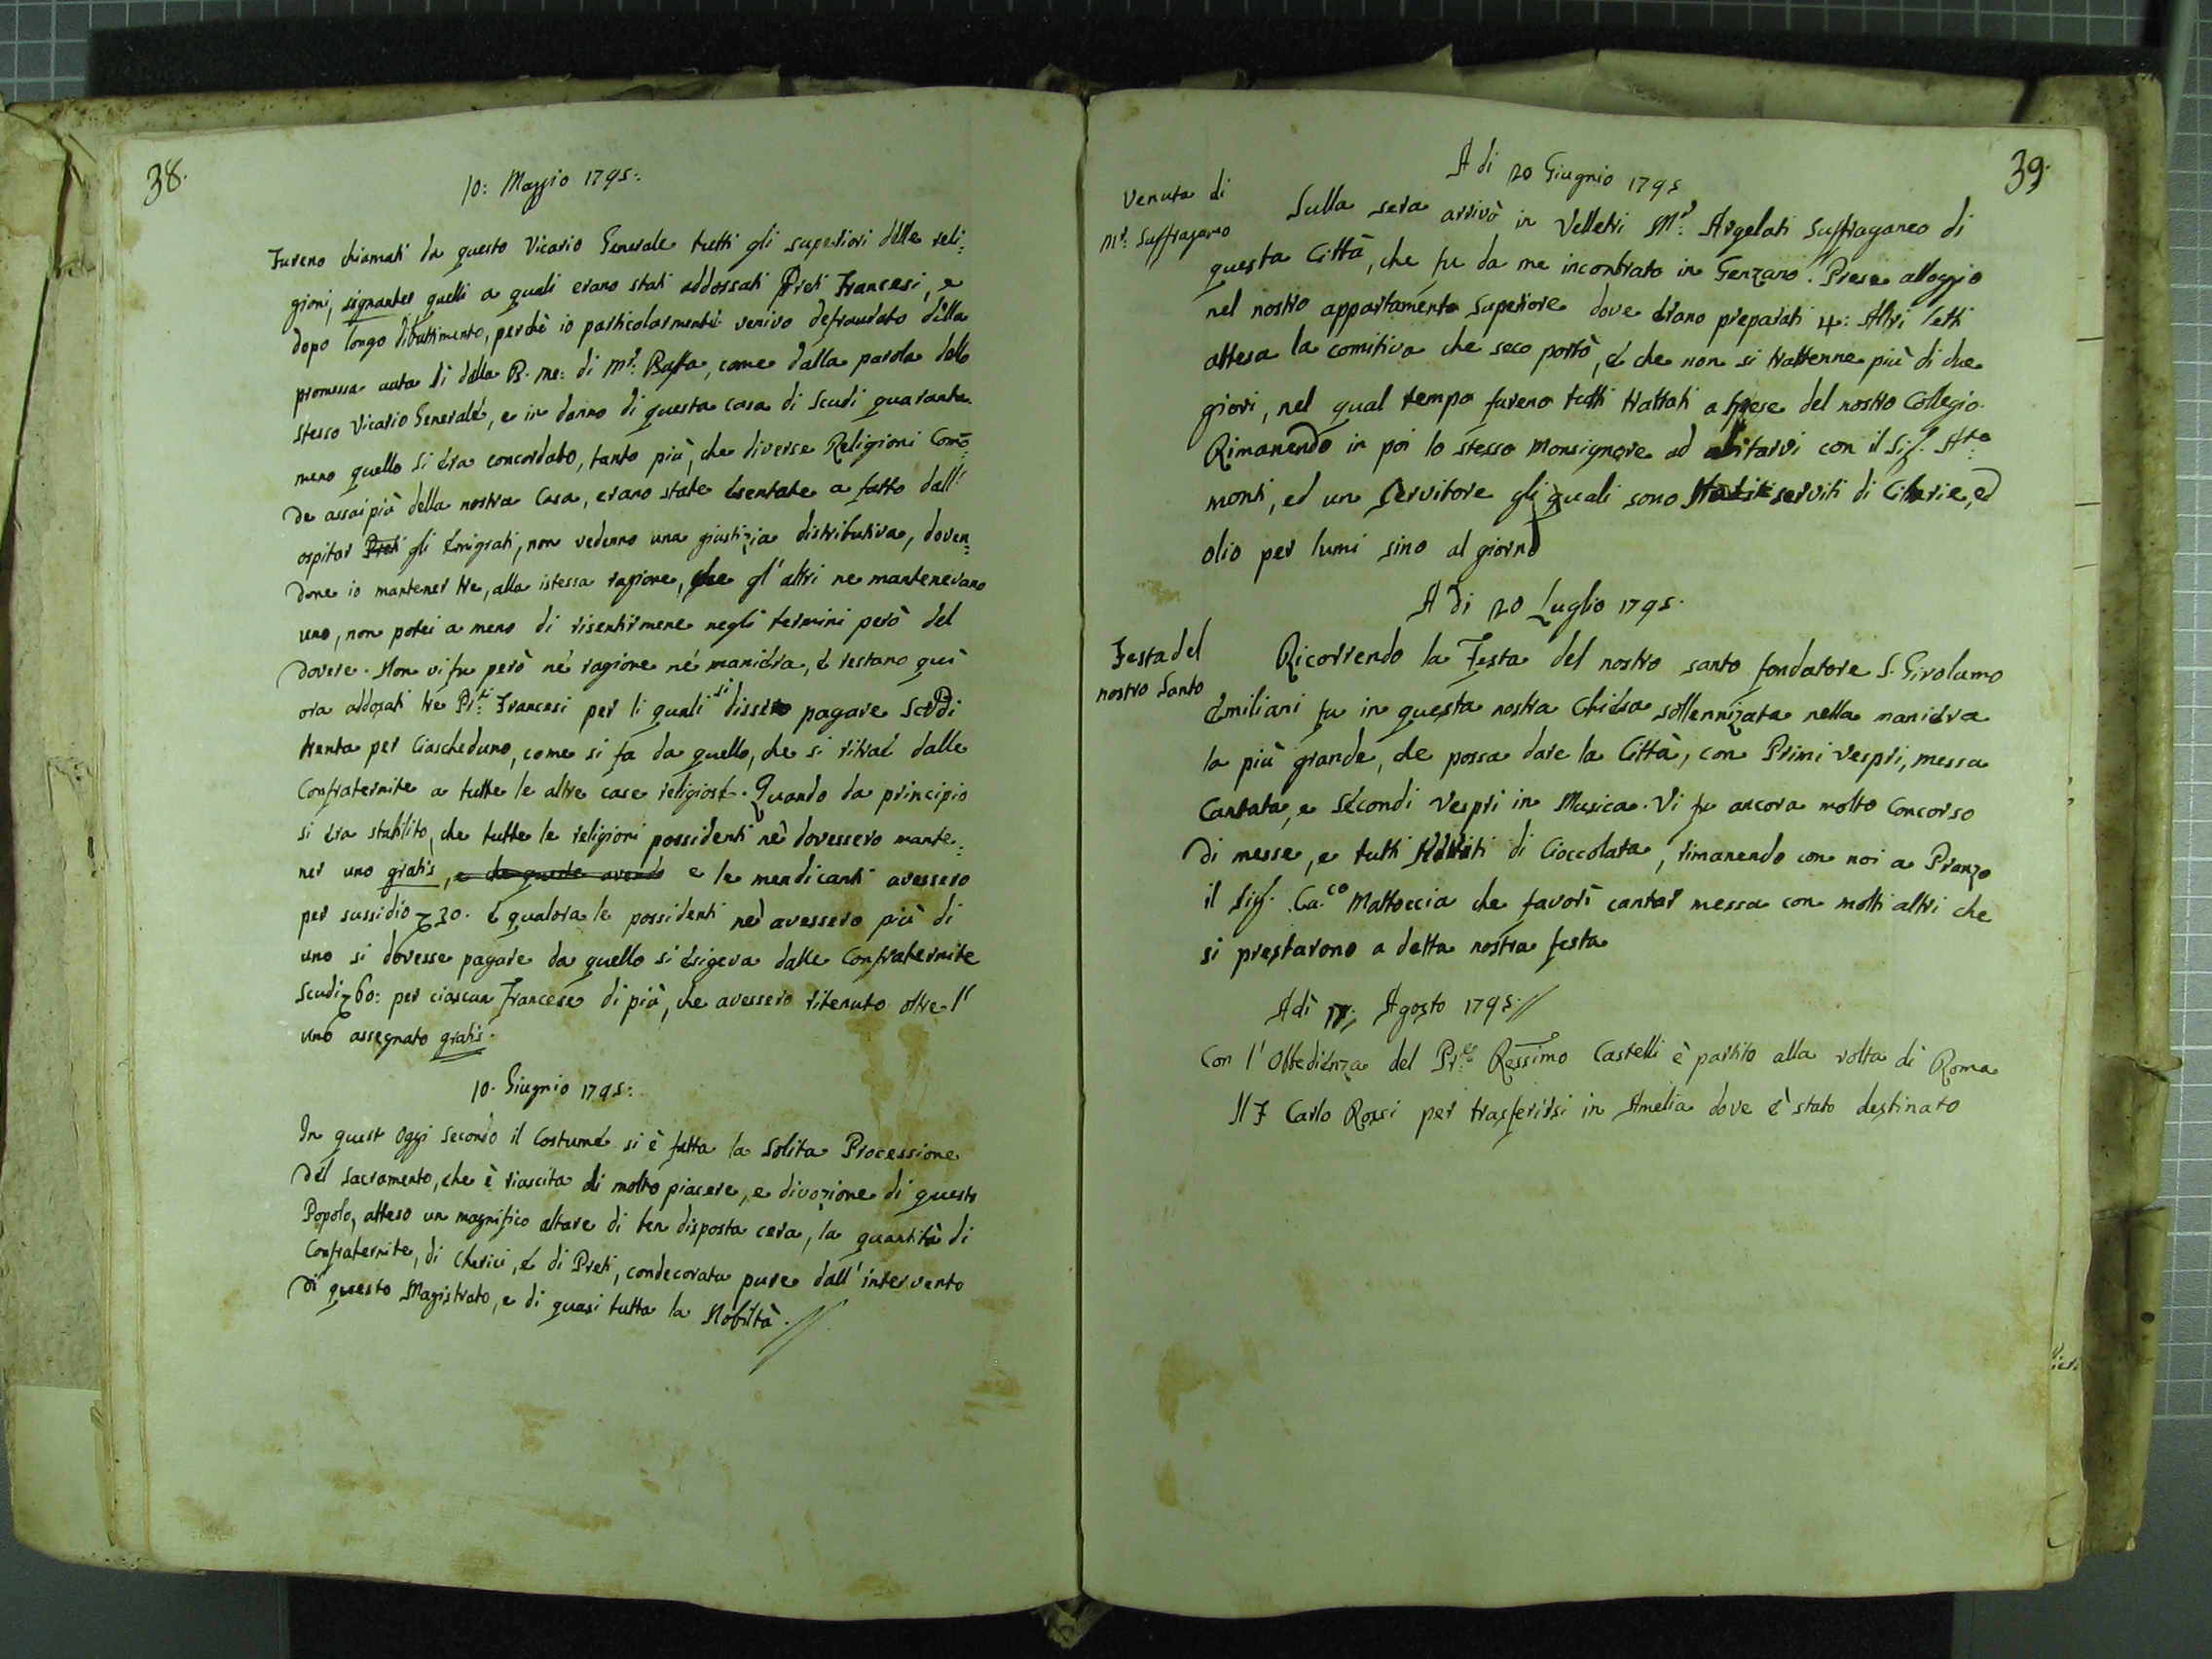 38.
10: Maggio 1795:
Fureno chiamati da questo Vicario Generale tutti gli superiori delle reli=
gioni, signanter quelli a quali erano stati addossati Preti Francesi, e
dopo longo dibattimento, perchè io particolarmente venivo defraudato della
promessa auta si dalla B. me: di Mr. Baffa, come dalla parola dello
stesso Vicario Generale, e in danno di questa casa di Scudi quaranta
meno quello si era concordato, tanto più, che diverse Religioni Com̄o=
de assai più della nostra Casa, erano state esentate a fatto dall'
ospitar Preti gli Emigrati, non vedenno una giustizia distributiva, doven=
done io mantener tre, alla istessa ragione, che gl'altri ne mantenevano
uno, non potei a meno di risentirmene negli termini però del
dovere. Non vi fu però nè ragione nè maniera, e restano qui
ora addosati tre Pr:ti Francesi per li quali si dissero pagare Scudi
trenta per Ciascheduno, come si fa da quello, che si ritrae dalle
Confraternite a tutte le altre case religiose. Quando da principio
si era stabilito, che tutte le religioni possidenti ne dovessero mante=
ner uno gratis, e che queste avendo e le mendicanti avessero
per sussidio 30. e qualora le possidenti ne avessero più di
uno si dovesse pagare da quello si esigeva dalle Confraternite
Scudi 60: per ciascun Francese di più, che avessero ritenuto oltre l'
uno assegnato gratis.
10. Giugnio 1795:
In quest Oggi secondo il Costume si è fatta la Solita Processione
del Sacramento, che è riuscita di molto piacere, e divozione di questo
Popolo, atteso un magnifico altare di ben disposta cera, la quantità di
Confraternite, di Cherici, e di Preti, condecorata pure dall'intervento
di questo Magistrato, e di quasi tutta la Nobiltà.//
39.
A di 20 Giugnio 1795
Venuta di
Mr: Suffraganeo
Sulla sera arrivò in Velletri Mr: Argelati Suffraganeo di
questa Città, che fu da me incontrato in Genzano. Prese alloggio
nel nostro appartamento Superiore dove erano preparati 4: Altri letti
attesa la comitiva che seco portò, e che non si trattenne più di due
giori, nel qual tempo fureno tutti trattati a spese del nostro Collegio.
Rimanendo in poi lo stesso Monsignore ad abitarvi con il Sig.
monti, ed un Servitore gli quali sono serviti di , ed
olio per lumi sino al giorno
A di 20 Luglio 1795.
Festa del
nostro Santo
Ricorrendo la Festa del nostro santo fondatore S. Girolamo
Emiliani fu in questa nostra Chiesa sollennizata nella maniera
la più grande, che possa dare la Città, con Primi vespri, messa
Cantata, e Secondi Vespri in Musica. Vi fu ancora molto Concorso
di messe, e tutti di Cioccolata, rimanendo con noi a Pranzo
il Sig. Ca:co Mattoccia che favorì cantar messa con molti altri che
si prestarono a detta nostra festa
Adì 17; Agosto 1795//
Con l'Obbedienza del Pr:e Rēssimo Castelli è partito alla volta di Roma
Il F Carlo Rossi per trasferirsi in Amelia dove è stato destinato